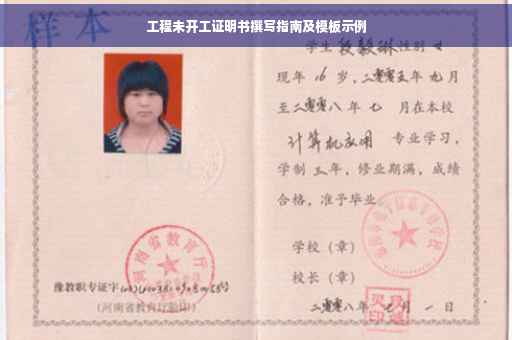 工程未开工证明书撰写指南及模板示例
样本
学生段毅琳性别女
现年16岁，二零零五年九月
至二零零八年七 月在本校
计算机应用 专业学习，
学制三年，修业期满，成绩
合格，准予毕业
学校（章）
校长（章）
二零零八年七月一日
河南省教育厅
豫教职专证字
（河南省教育厅验印）